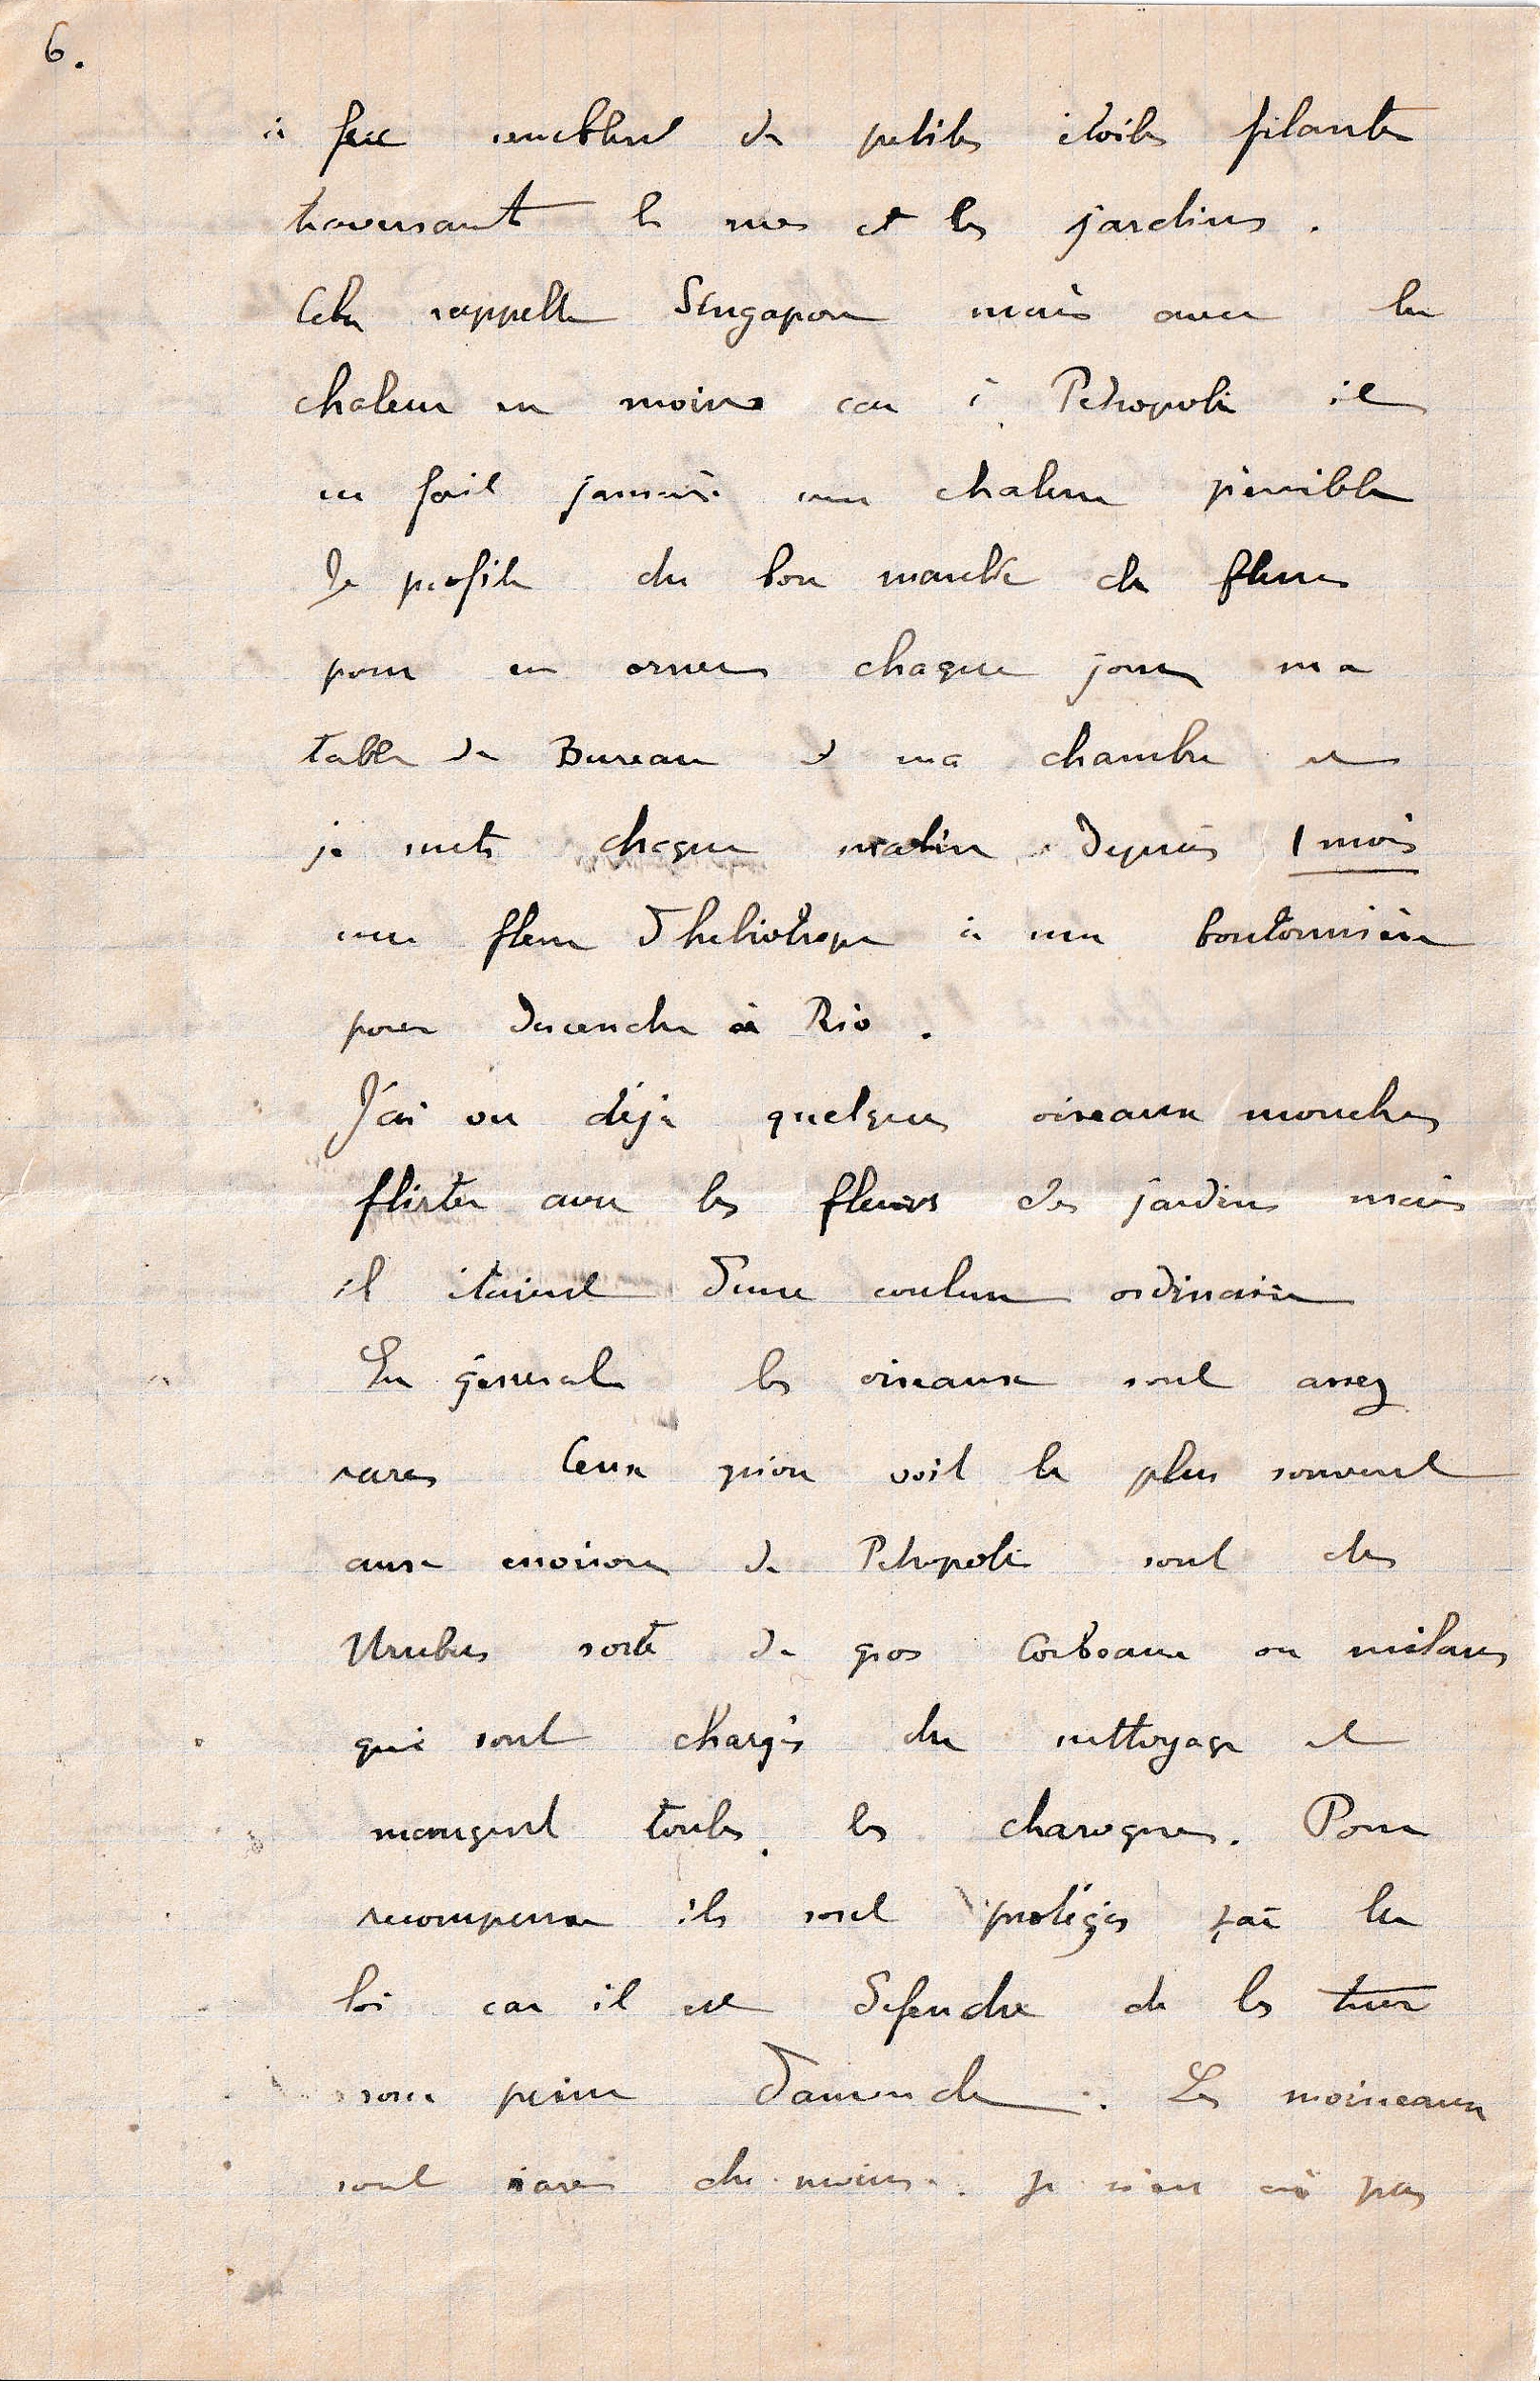 6.
à feu semblent de petites étoiles filantes
traversant les rues et les jardins.
Cela rappelle Singapore mais avec la
chaleur en moins car à Petropolis il
ne fait jamais une chaleur pénible
Je profite du bon marché des fleurs
pour en orner chaque jour ma
table de Bureau et ma chambre et
je mets chaque matin depuis 1 mois
une fleur d'heliotrope à ma boutonnière
pour descendre à Rio.
J'ai vu déjà quelques oiseaux mouches
flirter avec les fleurs des jardins mais
il étaient d'une couleur ordinaire
En général les oiseaux sont assez
rares Ceux qu'on voit le plus souvent
aux environs de Petropolis sont des
Urubus sorte de gros Corbeaux ou milans
qui sont chargés du nettoyage et
mangent toutes les charognes. Pour
recompense ils sont protégés par la
loi car il est défendre de les tuer
sous peine d'amende. Les moineaux
sont rares du moins. je n'en ai pas